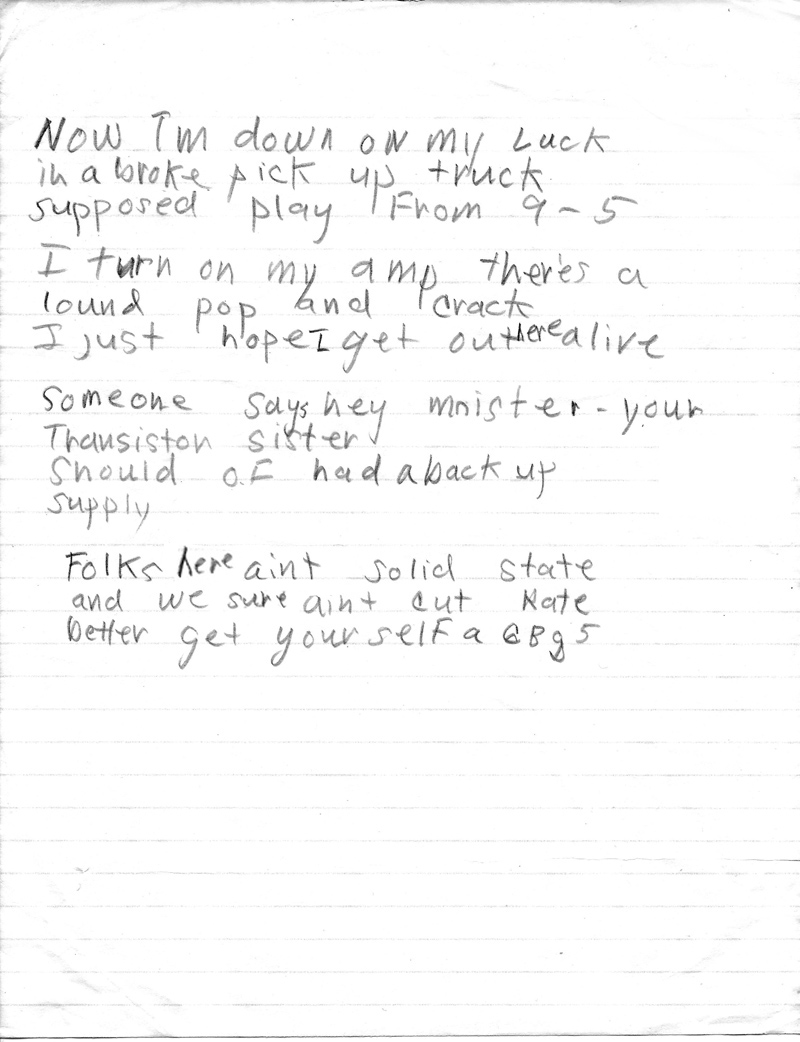 Now I'm down on my Luck
in a broke pick up truck
supposed play From 9-5
I turn on my amp there's a
lound pop and crack
I just hope I get out here alive
Someone says hey mnister - your
Transistor sister
Should of had a back up
supply
Folks here aint solid state
and we sure aint cut Rate
better get yourself a 6Bg5